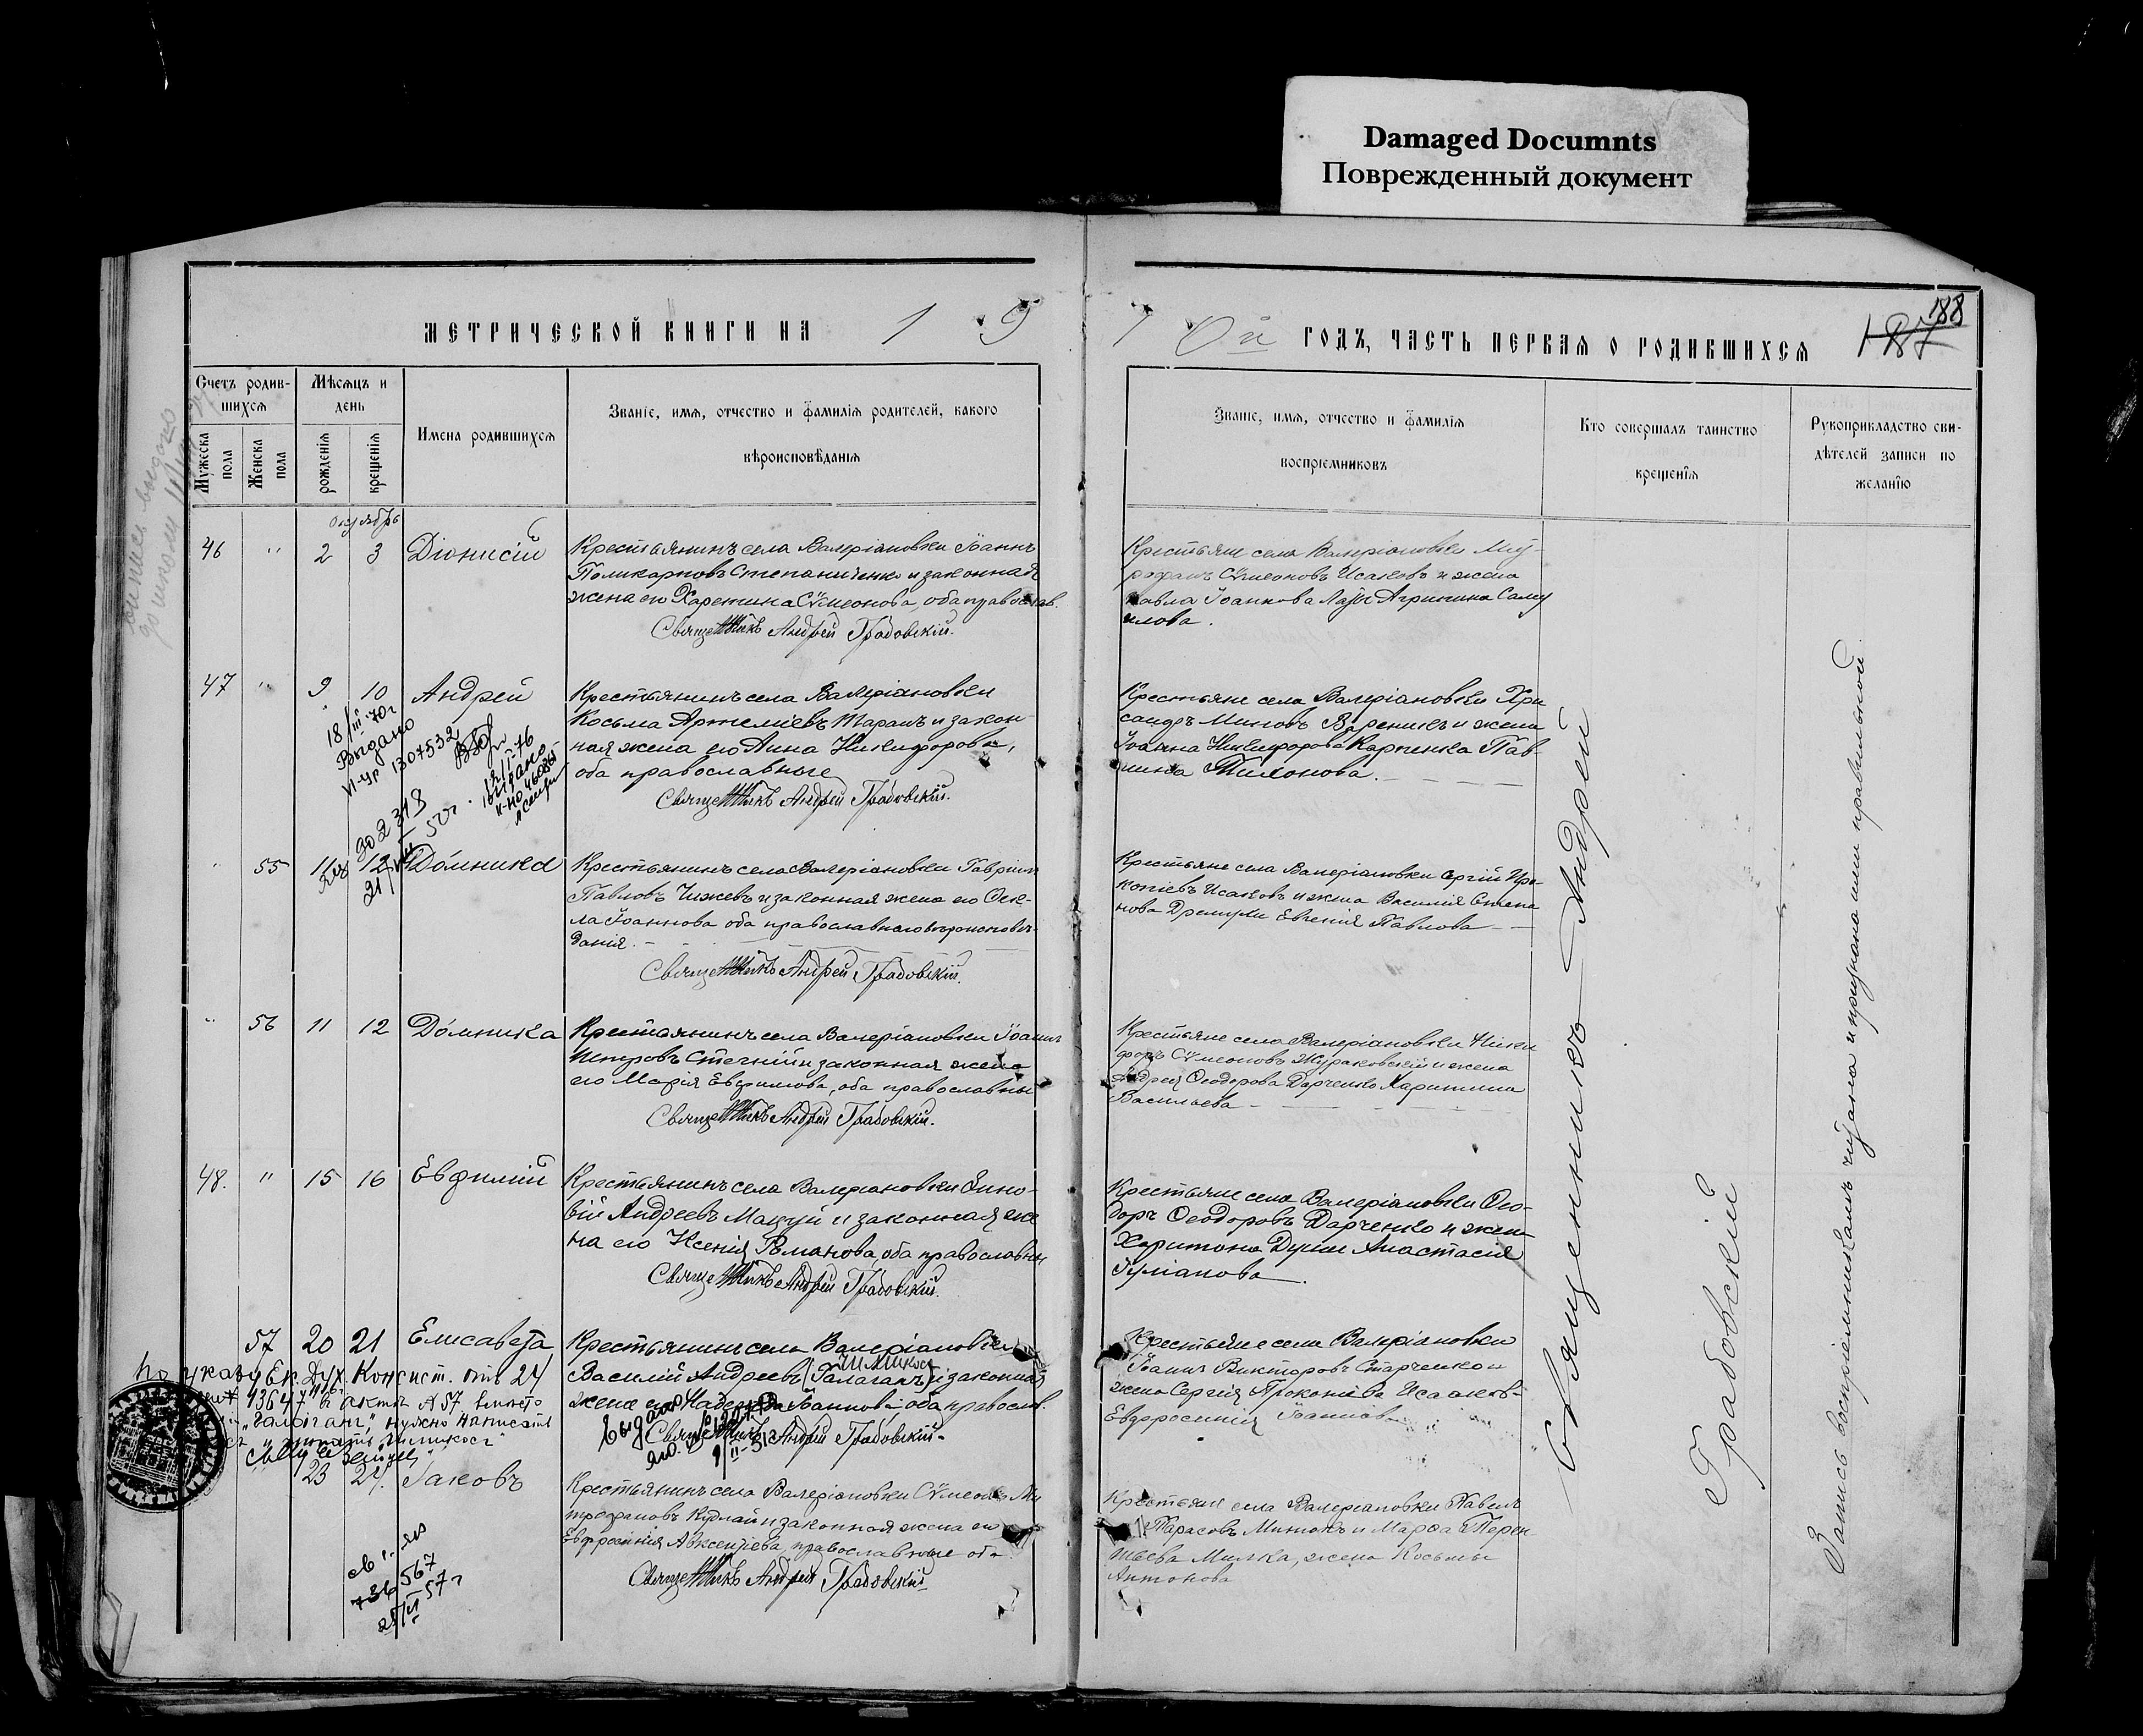 Damaged Documnts
Поврежденный документ
188
187
МЕТРИЧЕСКОЙ КНИГИ НА 1 9
1 0й ГОДЪ, ЧАСТЬ ПЕРВАЯ О РОДИВШИХСЯ
Счетъ родив-
шихся
Мужеска пола
Женска пола
Мѣсяцъ и
день
рожденія
крещенія
Имена родившихся
Званіе, имя, отчество и фамилія родителей, какого
вѣроисповѣданія
Званіе, имя, отчество и фамилія
воспріемниковъ
Кто совершалъ таинство
крещенія
Рукоприкладство сви-
дѣтелей записи по
желанію
Октябрь
46 " 2 3 Діонисій
Крестьянинъ села Валеріановки Іоаннъ
Поликарповъ Степаниченко и законная
жена его Харитина Сѵмеонова, оба православ.
Священникъ Андрей Градовскій.
Крестьяне села Валеріановки Мит-
рофанъ Сѵмеоновъ Исаковъ и жена
Павла Іоаннова Агрипина Саму
илова.
47 " 9 10 Андрей
18/III-70г
Выдано
1307532
12/I-76
Крестьянинъ села Валеріановки
Косьма Артеміевъ Таранъ и закон
ная жена его Анна Никифорова,
оба православные
Священникъ Андрей Градовскій.
Крестьяне села Валеріановки Хри
сандръ Миновъ и жена
Іоанна Никифорова Карпенка Пав-
лина Тихонова.
302318
" 55 11 12 Домника
Крестьянинъ села Валеріановки Гавріилъ
Павловъ Чижевъ и законная жена его Ѳек-
ла Іоаннова оба православнаго вѣроисповѣ-
данія.
Священникъ Андрей Градовскій.
Крестьяне села Валеріановки Сергій Про-
копіевъ Исаковъ и жена Василія Степа
нова Дремули Евгенія Павлова
" 56 11 12 Домника
Крестьянинъ села Валеріановки Іоаннъ
Петровъ Стечній и законная жена
его Марія Евфимова, оба православны
Священникъ Андрей Градовскій.
Крестьяне села Валеріановки Ники
форъ Сѵмеоновъ Жураковскій и жена
Андрея Ѳеодорова Дарченко Харитина
Васильева
48. " 15 16 Евфимій
Крестьянинъ села Валеріановки Зино-
вій Андреевъ Мацуй и законная же
на его Ксенія Романова, оба православны
Священникъ Андрей Градовскій.
Крестьяне села Валеріановки Ѳео-
доръ Ѳеодоровъ Дарченко и жена
Харитона Анастасія
Іуліанова.
57 20 21 Елисавета
Крестьянинъ села Валеріановки
Василій Андреевъ (Галаганъ) и законная
жена его Надежда Іоаннова оба православ.
Священникъ Андрей Градовскій.
Крестьяне села Валеріановки
Іоаннъ Викторовъ Старченко и
жена Сергія Прокопіева Исакова-
Евфросинія Іоаннова
По указу Ек. Дух. Консист. отъ 24
13647 въ актѣ №57 вмѣсто
"Галаганъ" нужно написать
23 24. Іаковъ
Крестьянинъ села Валеріановки Сѵмеонъ Ми
трофановъ и законная жена его
Евфросинія Авксентіева, православные оба
Священникъ Андрей Градовскій
Крестьяне села Валеріановки Павелъ
Тарасовъ и Марѳа Терен
тьева Милка, жена Косьмы
Антонова
736567
Священникъ Андрей
Градовскій
Запись воспріемникамъ читана и признана ими правильной.